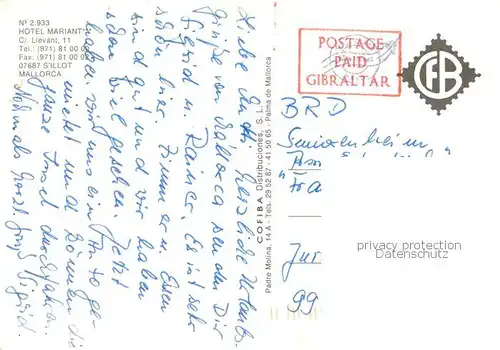 Nº 2.933
HOTEL MARIANT
C/. Llevant, 11
Tel.: (971) 81 00 0
Fax: (971) 81 00 0
07687 S'ILLOT
MALLORCA
Liebe herzliche Urlaubs-
grüße von Mallorca senden Dir
Sigrid u. Rainer. Es ist sehr
schön hier. Zimmer u. Essen
sind gut und wir haben
schon viel gesehen. Jetzt
haben wir uns ein Auto ge-
mietet und können die
ganze Insel durchfahren.
Nochmals herzl. Grüße Sigrid.
COFIBA Distribuciones, S. L.
Padre Molina, 14 A - Tels. 29 52 87 - 41 50 65 - Palma de Mallorca
POSTAGE
PAID
GIBRALTAR
CFB
BRD
Seniorenheim
privacy protection
Datenschutz
99